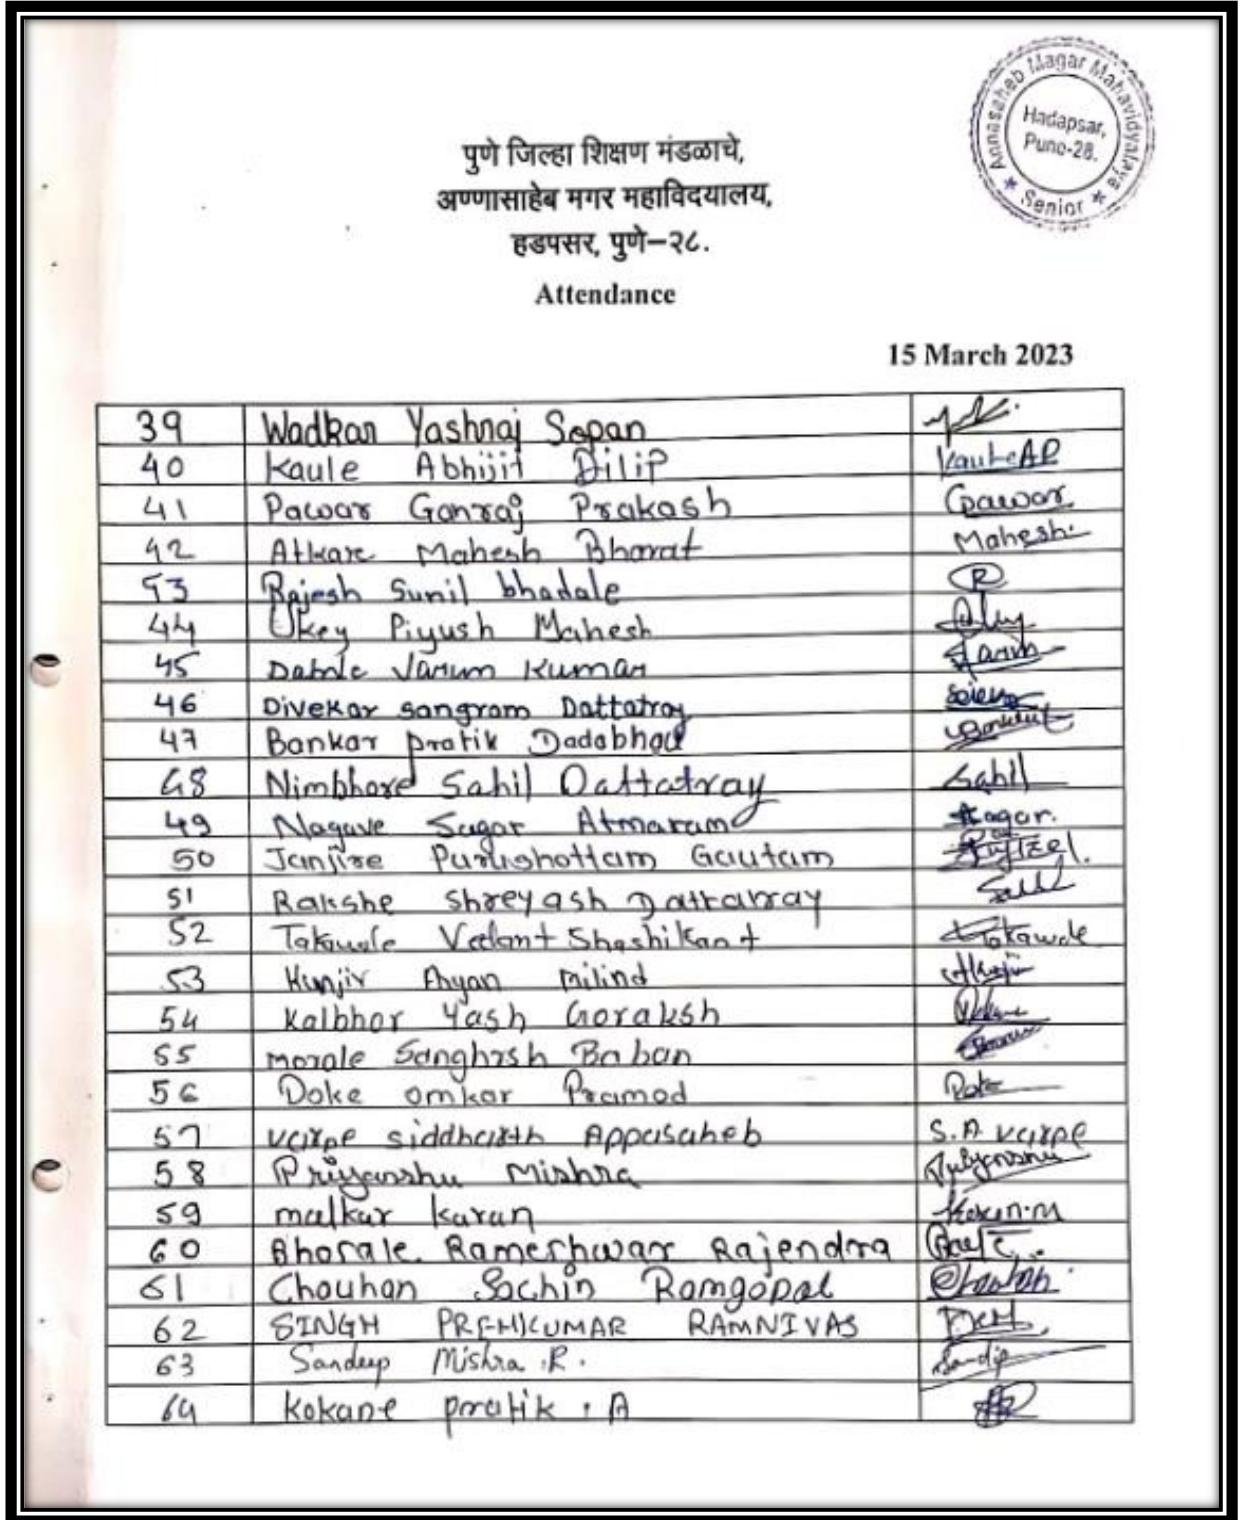 Annasaheb Magar Mahavidyalaya
Hadapsar,
Pune-28.
★ Senior ★
पुणे जिल्हा शिक्षण मंडळाचे,
अण्णासाहेब मगर महाविदयालय,
हडपसर, पुणे–२८.
Attendance
15 March 2023
39 Wadkar Yashraj Sopan
40 Kaule Abhijit Dilip KauleAD
41 Pawar Ganraj Prakash Gpawar
42 Atkare Mahesh Bharat Mahesh
43 Rajesh Sunil bhadale R
44 Ukey Piyush Mahesh
45 Varun Kumar Varun
46 Divekar sangram Dattatray
47 Bankar pratik Dadabhau
48 Nimbhore Sahil Dattatray Sahil
49 Nagave Sagar Atmaram Sagar.
50 Janjire Purushottam Gautam
51 Rakshe Shreyash Dattatray
52 Takawale Vedant Shashikant Takawale
53 Kunjir Ayan Milind
54 Kalbhor Yash Goraksh
55 morale Sangharsh Baban
56 Doke omkar Pramod Doke
57 varpe siddharth Appasaheb S.A varpe
58 Priyanshu Mishra Priyanshu
59 malkar karan Karan.m
60 Bhorale Rameshwar Rajendra
61 Chouhan Sachin Ramgopal Chouhan
62 SINGH PREMKUMAR RAMNIVAS
63 Sandeep Mishra .R. Sandip
64 Kokane pratik . A